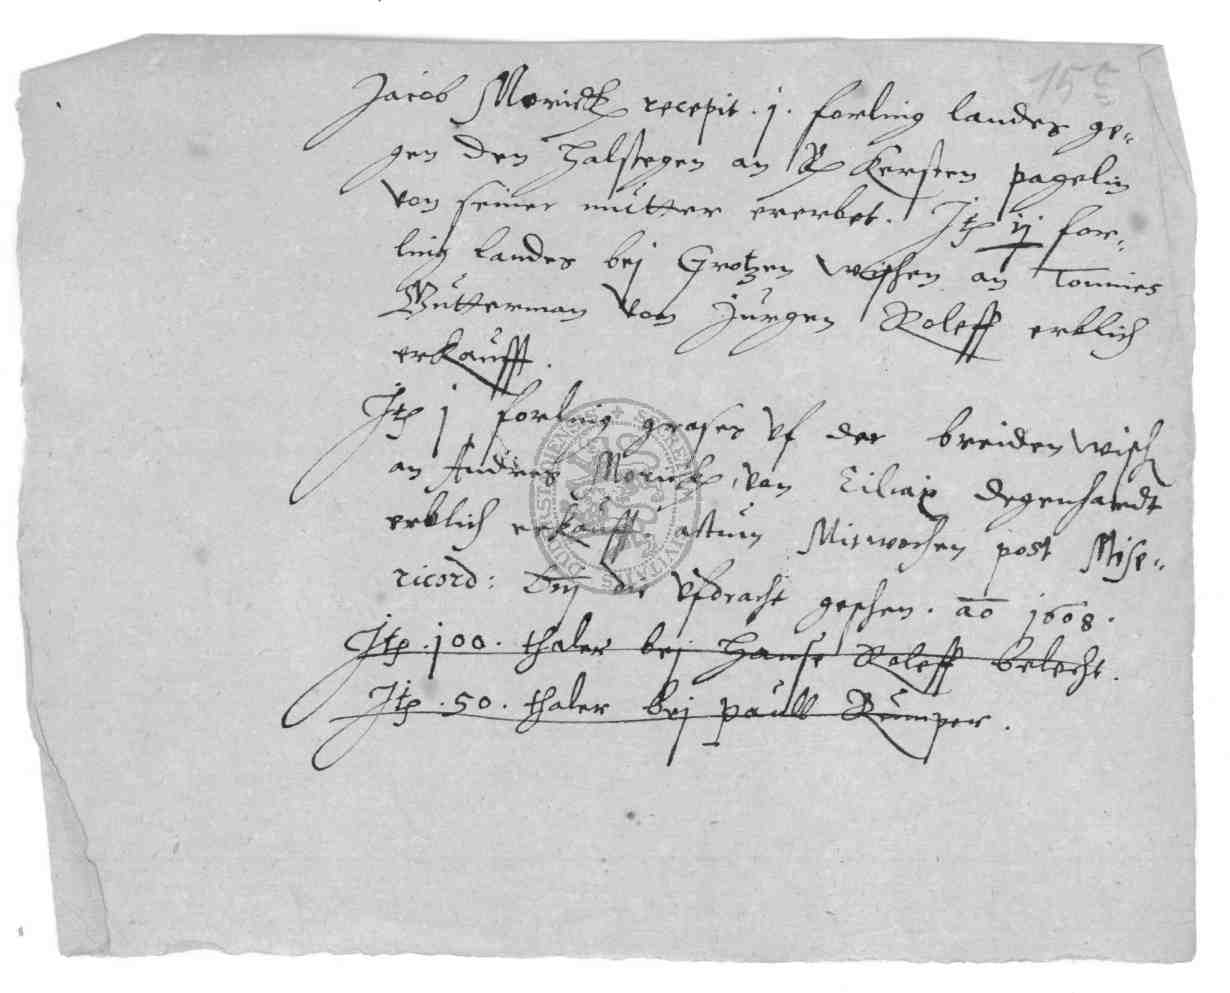 155
Jacob Morick recepit .j. forling landes ge-
gen den Halstegen an Kersten pagelin
von seiner mutter ererbet. Itz ij for-
ling landes bej Grotzen wischen an Tonnies
Gutterman von Jurgen Roleff erblich
erkaufft.
Itz j forling grases vf der breiden wisch
an Andres Morick, von Ciliax degenhardt
erblich erkaufft. actum Mitwochen post Mise-
ricord: die vfdracht geschen. ao 1608.
Itz .100. thaler bej Hanse Roleff belecht.
Itz .50. thaler bej paull Rumper.